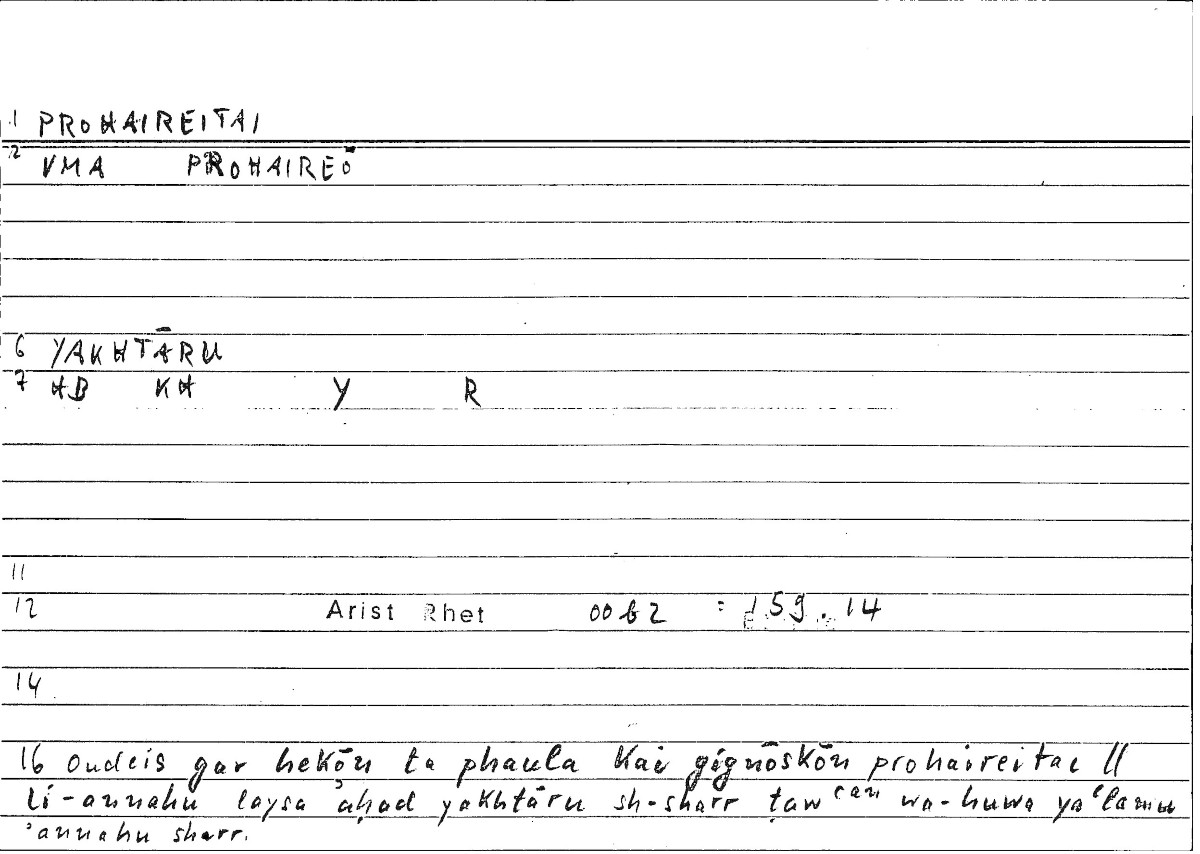 1 PROHAIREITAI
2 VMA PROHAIREŌ
6 YAKHTĀRU
7 HB KH Y R
11
12 Arist Rhet 00b2 = 159.14
14
16 oudeis gar hekōn ta phaula kai gignōskōn prohaireitai //
li-annahu laysa ʾaḥad yakhtāru sh-sharr ṭawʿan wa-huwa yaʿlamu
ʾannahu sharr.